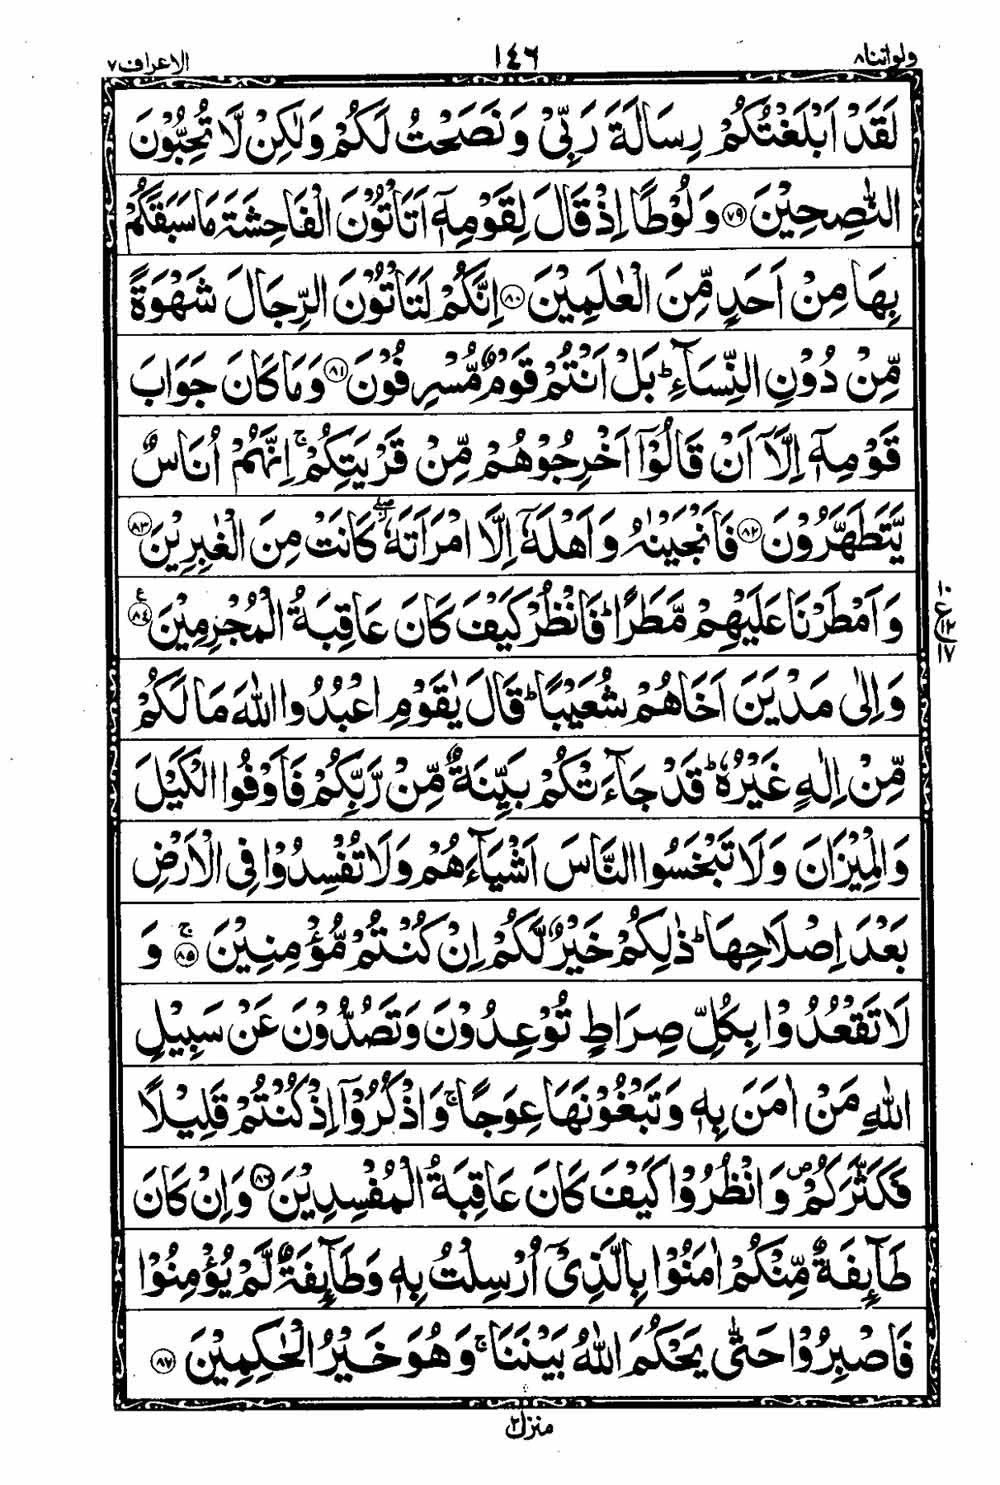 ولواننا ٨ ١٤٦ الاعراف ٧
لَقَدْ اَبْلَغْتُكُمْ رِسَالَةَ رَبِّیْ وَ نَصَحْتُ لَكُمْ وَلٰكِنْ لَّا تُحِبُّوْنَ
النّٰصِحِيْنَ ﴿٧٩﴾ وَ لُوْطًا اِذْ قَالَ لِقَوْمِهٖۤ اَتَاْتُوْنَ الْفَاحِشَةَ مَا سَبَقَكُمْ
بِهَا مِنْ اَحَدٍ مِّنَ الْعٰلَمِيْنَ ﴿٨٠﴾ اِنَّكُمْ لَتَاْتُوْنَ الرِّجَالَ شَهْوَةً
مِّنْ دُوْنِ النِّسَآءِ ؕ بَلْ اَنْتُمْ قَوْمٌ مُّسْرِفُوْنَ ﴿٨١﴾ وَ مَا كَانَ جَوَابَ
قَوْمِهٖۤ اِلَّاۤ اَنْ قَالُوْۤا اَخْرِجُوْهُمْ مِّنْ قَرْيَتِكُمْ ۚ اِنَّهُمْ اُنَاسٌ
يَّتَطَهَّرُوْنَ ﴿٨٢﴾ فَاَنْجَيْنٰهُ وَ اَهْلَهٗۤ اِلَّا امْرَاَتَهٗ ۖ كَانَتْ مِنَ الْغٰبِرِيْنَ ﴿٨٣﴾
وَ اَمْطَرْنَا عَلَيْهِمْ مَّطَرًا ؕ فَانْظُرْ كَيْفَ كَانَ عَاقِبَةُ الْمُجْرِمِيْنَ ﴿٨٤﴾ ع
١٠
ع ١٢
١٧
وَ اِلٰى مَدْيَنَ اَخَاهُمْ شُعَيْبًا ؕ قَالَ يٰقَوْمِ اعْبُدُوا اللّٰهَ مَا لَكُمْ
مِّنْ اِلٰهٍ غَيْرُهٗ ؕ قَدْ جَآءَتْكُمْ بَيِّنَةٌ مِّنْ رَّبِّكُمْ فَاَوْفُوا الْكَيْلَ
وَ الْمِيْزَانَ وَ لَا تَبْخَسُوا النَّاسَ اَشْيَآءَهُمْ وَ لَا تُفْسِدُوْا فِی الْاَرْضِ
بَعْدَ اِصْلَاحِهَا ؕ ذٰلِكُمْ خَيْرٌ لَّكُمْ اِنْ كُنْتُمْ مُّؤْمِنِيْنَ ﴿٨٥﴾ ۚ وَ
لَا تَقْعُدُوْا بِكُلِّ صِرَاطٍ تُوْعِدُوْنَ وَ تَصُدُّوْنَ عَنْ سَبِيْلِ
اللّٰهِ مَنْ اٰمَنَ بِهٖ وَ تَبْغُوْنَهَا عِوَجًا ۚ وَ اذْكُرُوْۤا اِذْ كُنْتُمْ قَلِيْلًا
فَكَثَّرَكُمْ ۪ وَ انْظُرُوْا كَيْفَ كَانَ عَاقِبَةُ الْمُفْسِدِيْنَ ﴿٨٦﴾ وَ اِنْ كَانَ
طَآئِفَةٌ مِّنْكُمْ اٰمَنُوْا بِالَّذِیْۤ اُرْسِلْتُ بِهٖ وَ طَآئِفَةٌ لَّمْ يُؤْمِنُوْا
فَاصْبِرُوْا حَتّٰى يَحْكُمَ اللّٰهُ بَيْنَنَا ۚ وَ هُوَ خَيْرُ الْحٰكِمِيْنَ ﴿٨٧﴾
منزل ٢